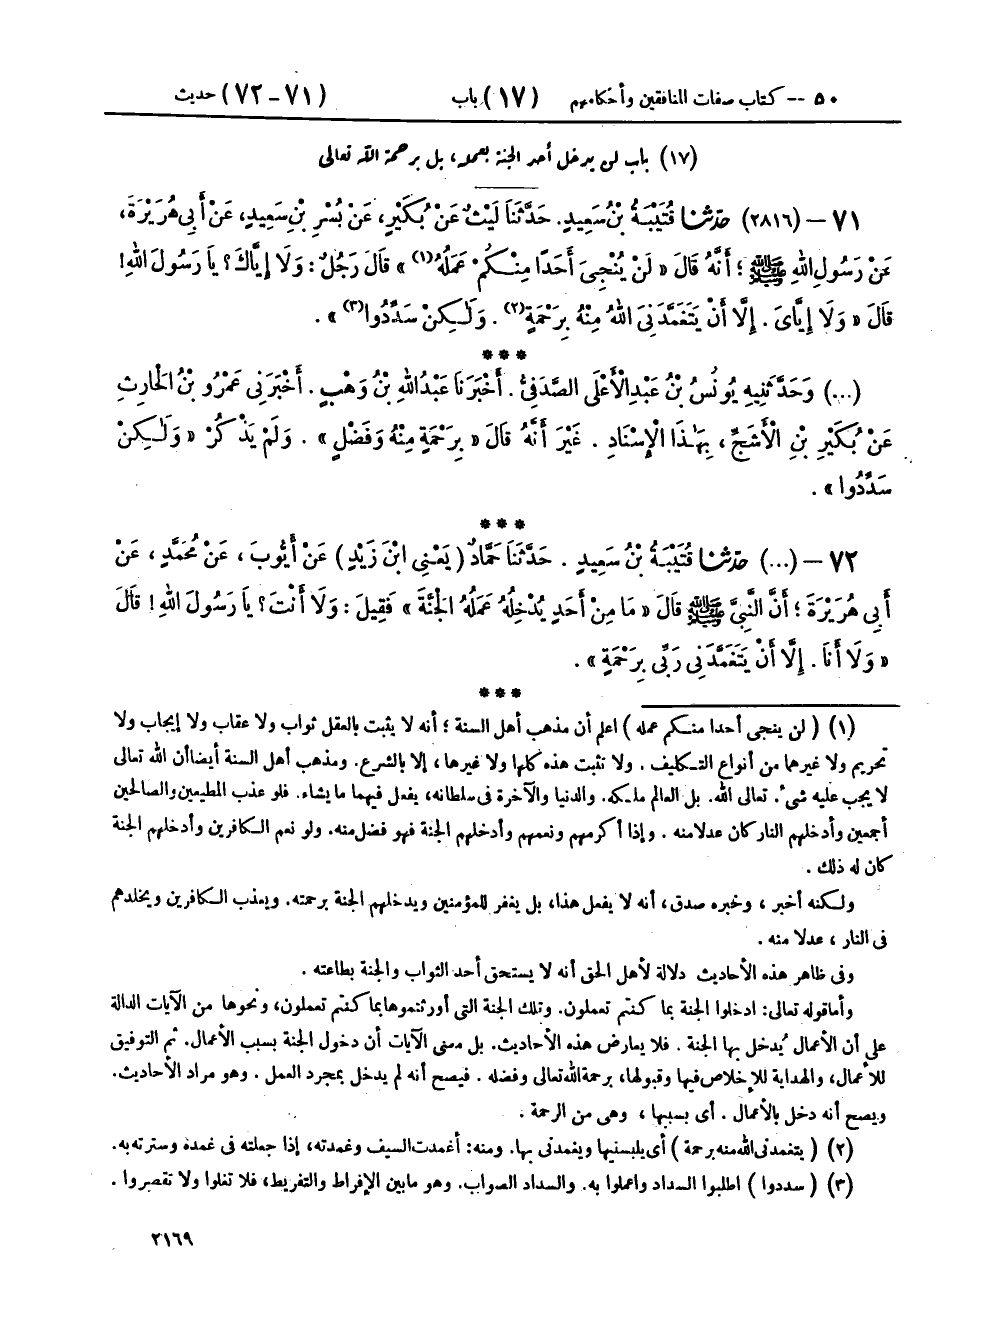 ٥٠ -- كتاب صفات المنافقين وأحكامهم (١٧) باب (٧١-٧٢) حديث
(١٧) باب لن يدخل أحد الجنة بعمله، بل برحمة الله تعالى
٧١ - (٢٨١٦) حَدَّثَنَا قُتَيْبَةُ بْنُ سَعِيدٍ. حَدَّثَنَا لَيْثٌ عَنْ بُكَيْرٍ، عَنْ بُسْرِ بْنِ سَعِيدٍ، عَنْ أَبِي هُرَيْرَةَ،
عَنْ رَسُولِ اللهِ ﷺ ؛ أَنَّهُ قَالَ « لَنْ يُنْجِيَ أَحَدًا مِنْكُمْ عَمَلُهُ(١) » قَالَ رَجُلٌ : وَلَا إِيَّاكَ ؟ يَا رَسُولَ اللهِ !
قَالَ « وَلَا إِيَّايَ . إِلَّا أَنْ يَتَغَمَّدَنِيَ اللهُ مِنْهُ بِرَحْمَةٍ(٢) . وَلَٰكِنْ سَدِّدُوا(٣) » .
***
(...) وَحَدَّثَنِيهِ يُونُسُ بْنُ عَبْدِ الْأَعْلَى الصَّدَفِيُّ . أَخْبَرَنَا عَبْدُ اللهِ بْنُ وَهْبٍ . أَخْبَرَنِي عَمْرُو بْنُ الْحَارِثِ
عَنْ بُكَيْرِ بْنِ الْأَشَجِّ ، بِهَٰذَا الْإِسْنَادِ . غَيْرَ أَنَّهُ قَالَ « بِرَحْمَةٍ مِنْهُ وَفَضْلٍ » . وَلَمْ يَذْكُرْ « وَلَٰكِنْ
سَدِّدُوا » .
***
٧٢ - (...) حَدَّثَنَا قُتَيْبَةُ بْنُ سَعِيدٍ . حَدَّثَنَا حَمَّادٌ ( يَعْنِي ابْنَ زَيْدٍ ) عَنْ أَيُّوبَ ، عَنْ مُحَمَّدٍ ، عَنْ
أَبِي هُرَيْرَةَ ؛ أَنَّ النَّبِيَّ ﷺ قَالَ « مَا مِنْ أَحَدٍ يُدْخِلُهُ عَمَلُهُ الْجَنَّةَ » فَقِيلَ : وَلَا أَنْتَ ؟ يَا رَسُولَ اللهِ ! قَالَ
« وَلَا أَنَا . إِلَّا أَنْ يَتَغَمَّدَنِي رَبِّي بِرَحْمَةٍ » .
***
(١) ( لن ينجى أحدا منكم عمله ) اعلم أن مذهب أهل السنة ؛ أنه لا يثبت بالعقل ثواب ولا عقاب ولا إيجاب ولا
تحريم ولا غيرها من أنواع التكليف . ولا تثبت هذه كلها ولا غيرها ، إلا بالشرع. ومذهب أهل السنة أيضا أن الله تعالى
لا يجب عليه شىء. تعالى الله. بل العالم ملكه. والدنيا والآخرة فى سلطانه، يفعل فيهما ما يشاء. فلو عذب المطيعين والصالحين
أجمعين وأدخلهم النار كان عدلا منه . وإذا أكرمهم ونعمهم وأدخلهم الجنة فهو فضل منه. ولو نعم الكافرين وأدخلهم الجنة
كان له ذلك .
ولكنه أخبر ، وخبره صدق، أنه لا يفعل هذا، بل يغفر للمؤمنين ويدخلهم الجنة برحمته. ويعذب الكافرين ويخلدهم
فى النار ، عدلا منه .
وفى ظاهر هذه الأحاديث دلالة لأهل الحق أنه لا يستحق أحد الثواب والجنة بطاعته .
وأما قوله تعالى: ادخلوا الجنة بما كنتم تعملون. وتلك الجنة التى أورثتموها بما كنتم تعملون، ونحوها من الآيات الدالة
على أن الأعمال يُدخل بها الجنة . فلا يعارض هذه الأحاديث. بل معنى الآيات أن دخول الجنة بسبب الأعمال. ثم التوفيق
للأعمال، والهداية للإخلاص فيها وقبولها، برحمة الله تعالى وفضله . فيصح أنه لم يدخل بمجرد العمل . وهو مراد الأحاديث.
ويصح أنه دخل بالأعمال . أى بسببها ، وهى من الرحمة .
(٢) ( يتغمدنى الله منه برحمة ) أى يلبسنيها ويغمدنى بها. ومنه: أغمدت السيف وغمدته، إذا جعلته فى غمده وسترته به.
(٣) ( سددوا ) اطلبوا السداد واعملوا به. والسداد الصواب. وهو ما بين الإفراط والتفريط، فلا تغلوا ولا تقصروا .
٢١٦٩